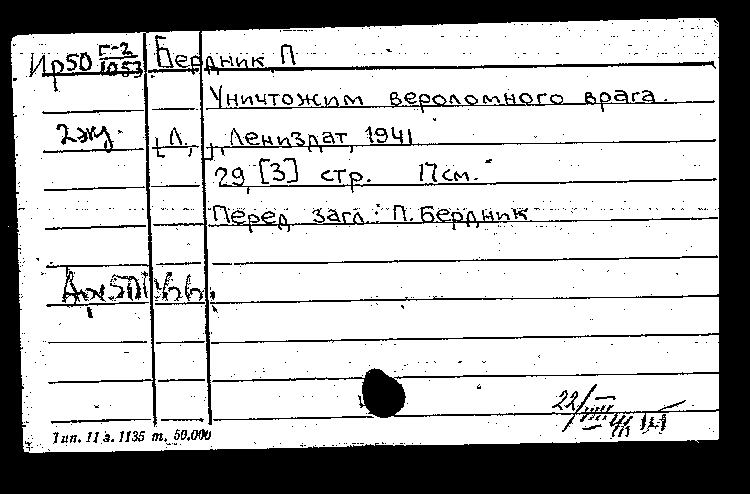 Ир50 Г-2/1053 Бердник, П
Уничтожим вероломного врага.
2 экз. [Л.], Лениздат, 1941
29, [3] стр. 17 см.
Перед загл.: П. Бердник
22/VIII
Тип. 11 з. 1135 т. 50.000